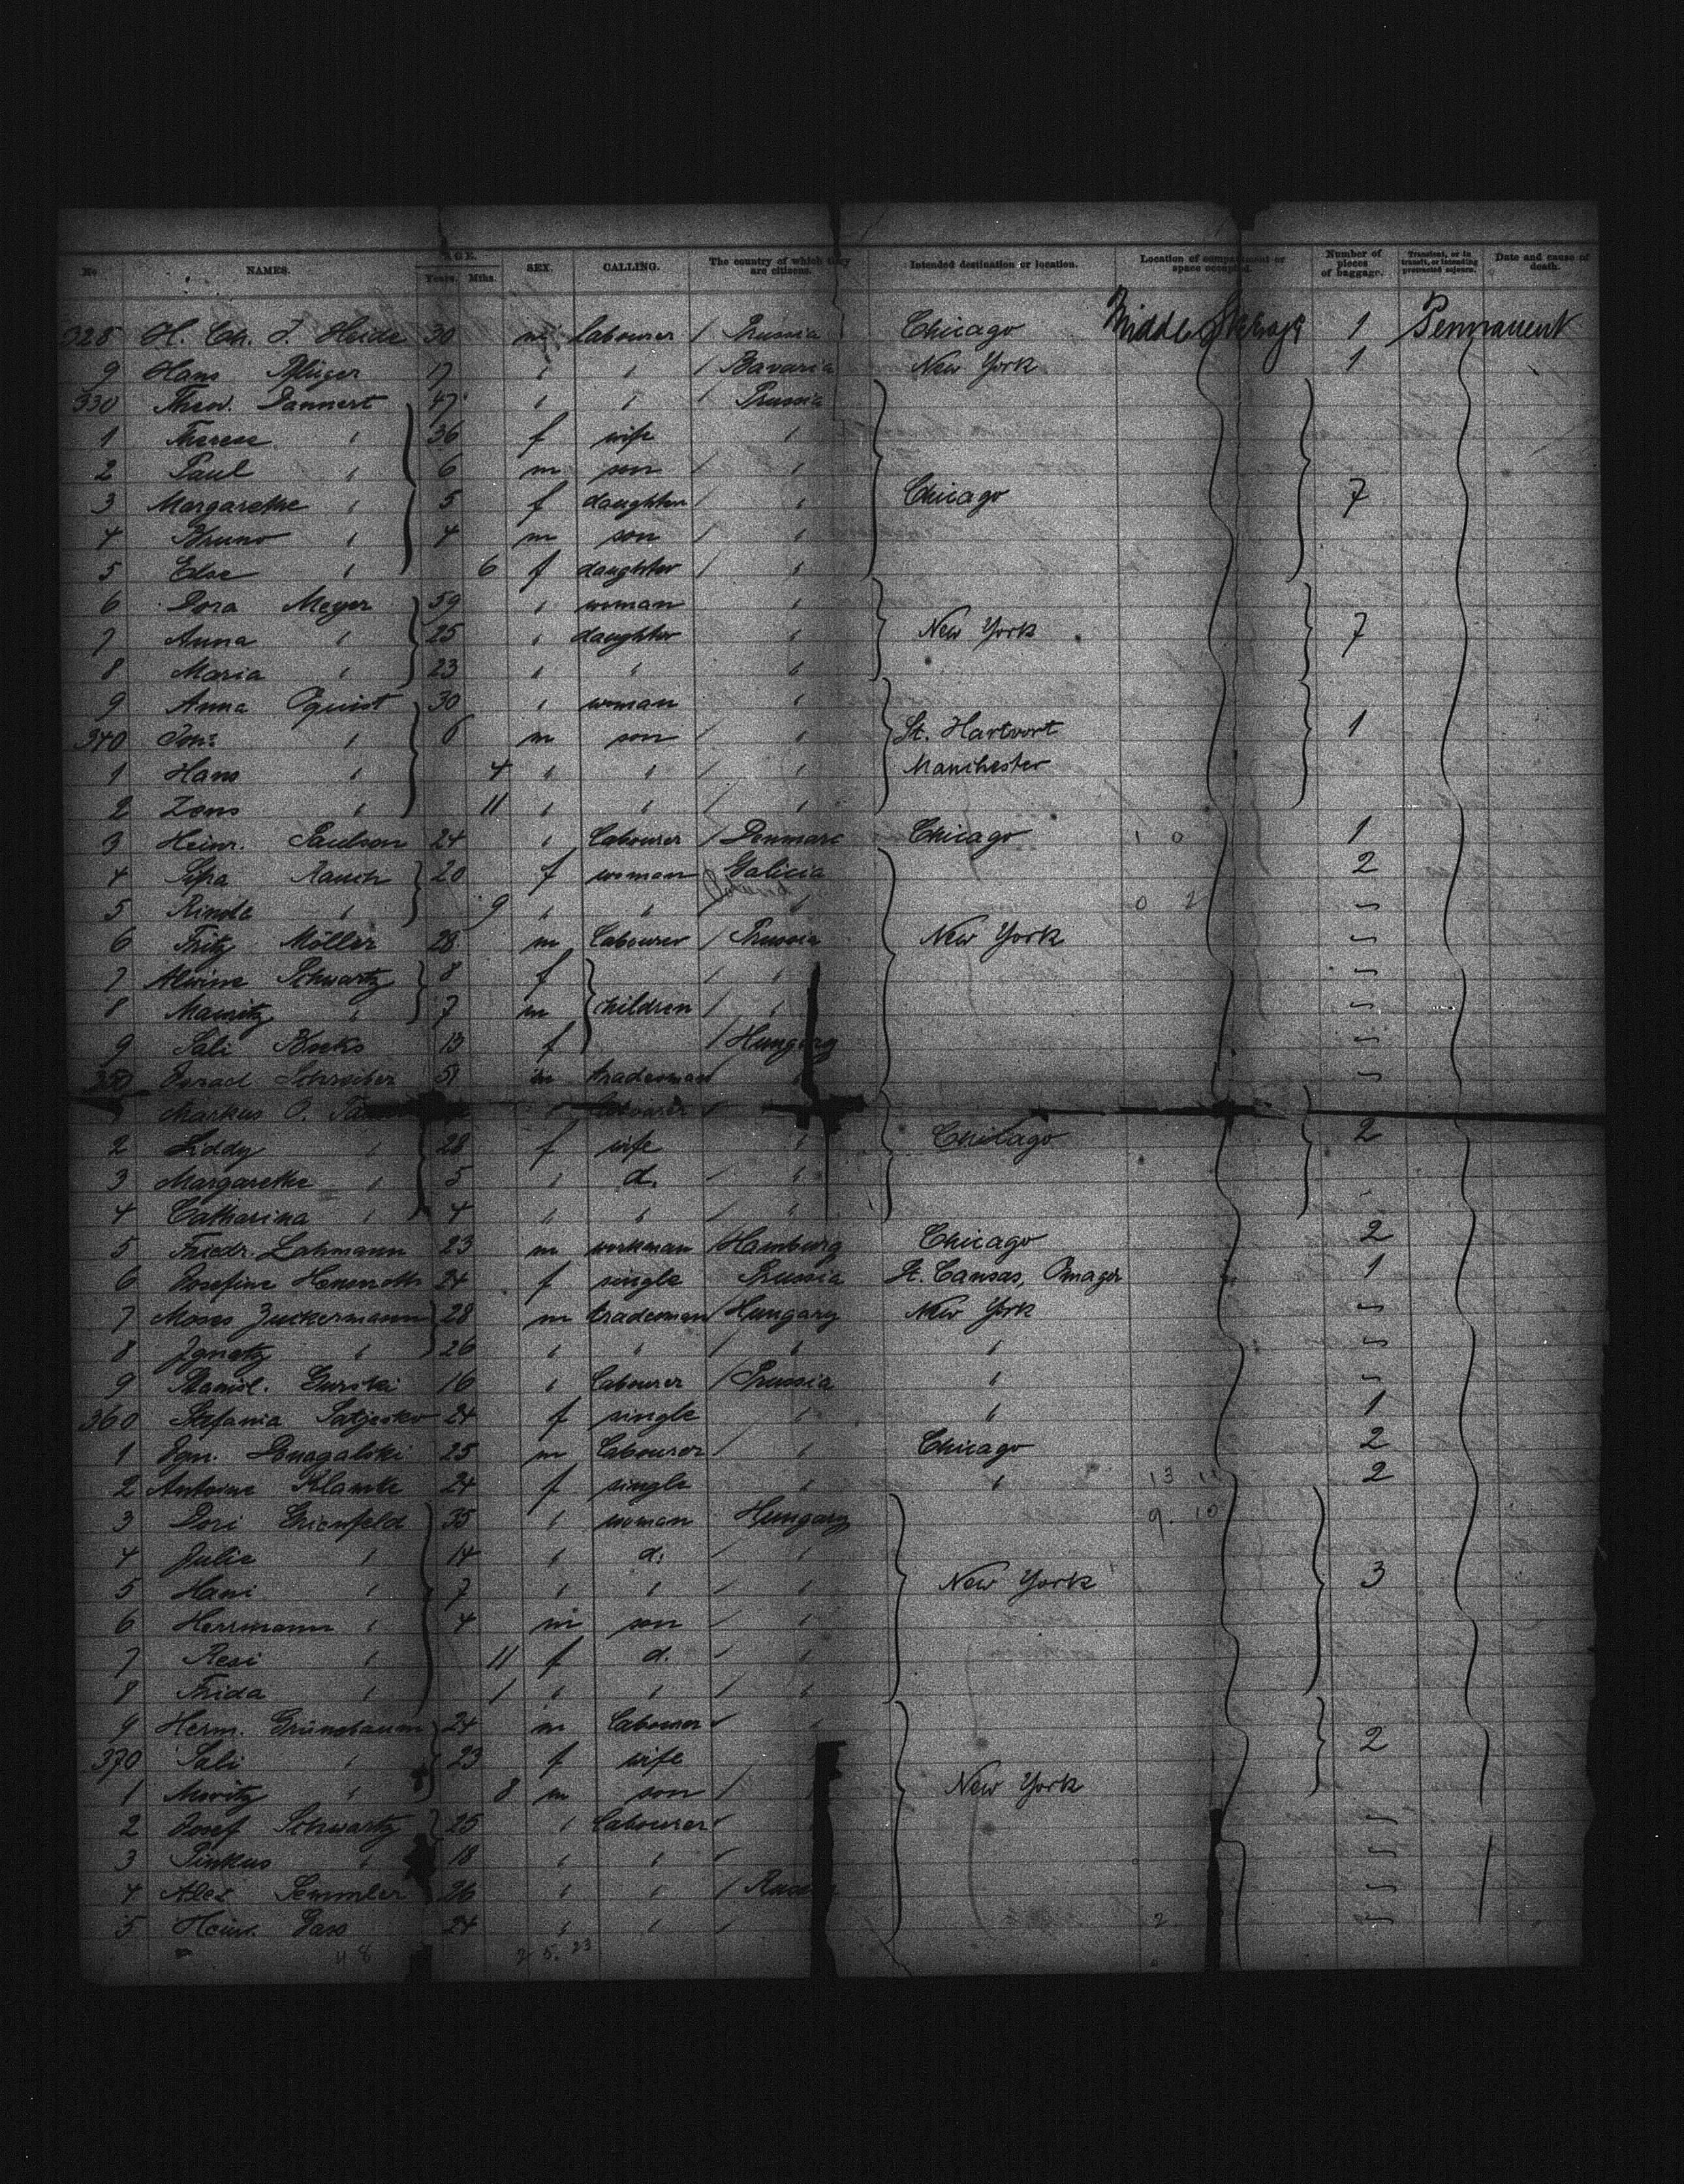 No NAMES. AGE. Years. Mths. SEX. CALLING. The country of which they are citizens. Intended destination or location. Location of compartment or space occupied. Number of pieces of baggage. Transient, or in transit, or intending protracted sojourn. Date and cause of death.
328 H. Ch. J. Heide 30 m labourer / Prussia Chicago Middle Steerage 1 Permanent
9 Hans Pflüger 17 " " / Bavaria New York 1
330 Theod. Dannert 47 " " / Prussia
1 Therese " 36 f wife "
2 Paul " 6 m son / "
3 Margarethe " 5 f daughter / " Chicago 7
4 Bruno " 4 m son / "
5 Else " 6 f daughter / "
6 Dora Meyer 59 " woman "
7 Anna " 25 " daughter " New York 7
8 Maria " 23 " " "
9 Anna Oquist 30 " woman "
340 " 6 m son / " St. Hartvort 1
1 Hans " 4 " " / " Manchester
2 Zens " 11 " " / "
3 Heinr. Paulson 24 " labourer / Denmarc Chicago 1 0 1
4 Rauch 20 f woman Galicia 2
5 " 9 " " / " 0 2 "
6 Fritz Möller 28 m labourer / Prussia New York "
7 Alwine Schwartz 8 f / " "
8 Mauritz " 7 m children / " "
9 Sali 13 f / Hungary "
350 Schreiber 51 m tradesman "
Markus O. labourer /
2 Liddy " 28 f wife " Chicago 2
3 Margarethe " 5 " d. / "
4 Catharina " 4 " " / "
5 Friedr. Lahmann 23 m workman / Hamburg Chicago 2
6 Josefine 24 f single Prussia St. Cansas, Omager 1
7 Moses Zuckermann 28 m tradesman / Hungary New York "
8 Ignatz " 26 " " / " " "
9 Stanisl. Gurski 16 " labourer / Prussia " "
360 Stefania 24 f single " " 1
1 25 m labourer / " Chicago 2
2 Antoine Klamke 24 f single " " 13 11 2
3 Dori Grienfeld 35 " woman Hungary 9. 10
4 Julie " 14 " d. / "
5 Hani " 7 " " / " New York 3
6 Herrmann " 4 m son / "
7 Resi " 11 f d. / "
8 Frida " 1 " " / "
9 Herm. Grünsbaum 24 m labourer / "
370 Sali " 23 f wife 2
1 Moritz " 8 m son / New York
2 Josef Schwartz 25 " labourer / "
3 Pinkus " 18 " " / "
4 Alex Semmler 26 " " / "
5 Heinr. 24 " " / 2 "
48 25. 23